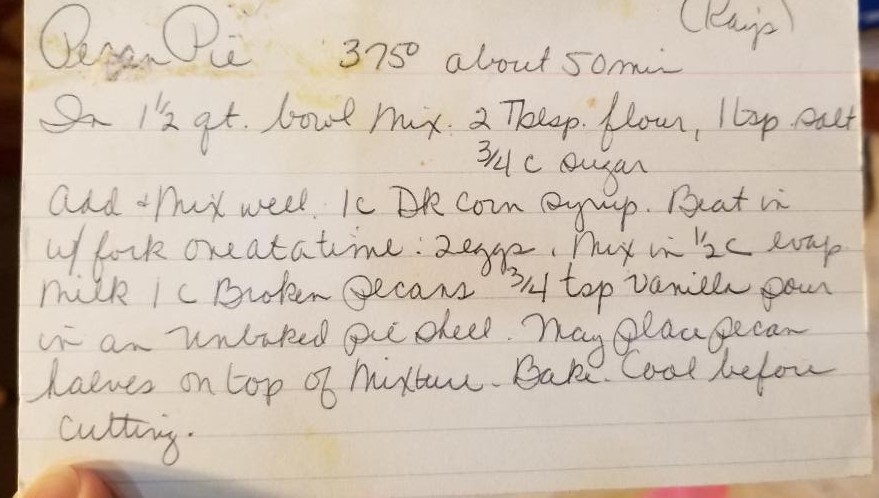 Pecan Pie 375° about 50 min
In 1 1/2 qt. bowl mix. 2 Tblsp. flour, 1 tsp. salt
3/4 c sugar
add & Mix well. 1c DK Corn syrup. Beat in
w/ fork one at a time: 2 eggs. Mix in 1/2 c evap
milk 1 C Broken Pecans 3/4 tsp vanilla pour
in an unbaked pie shell. May place pecan
halves on top of mixture. Bake. Cool before
cutting.